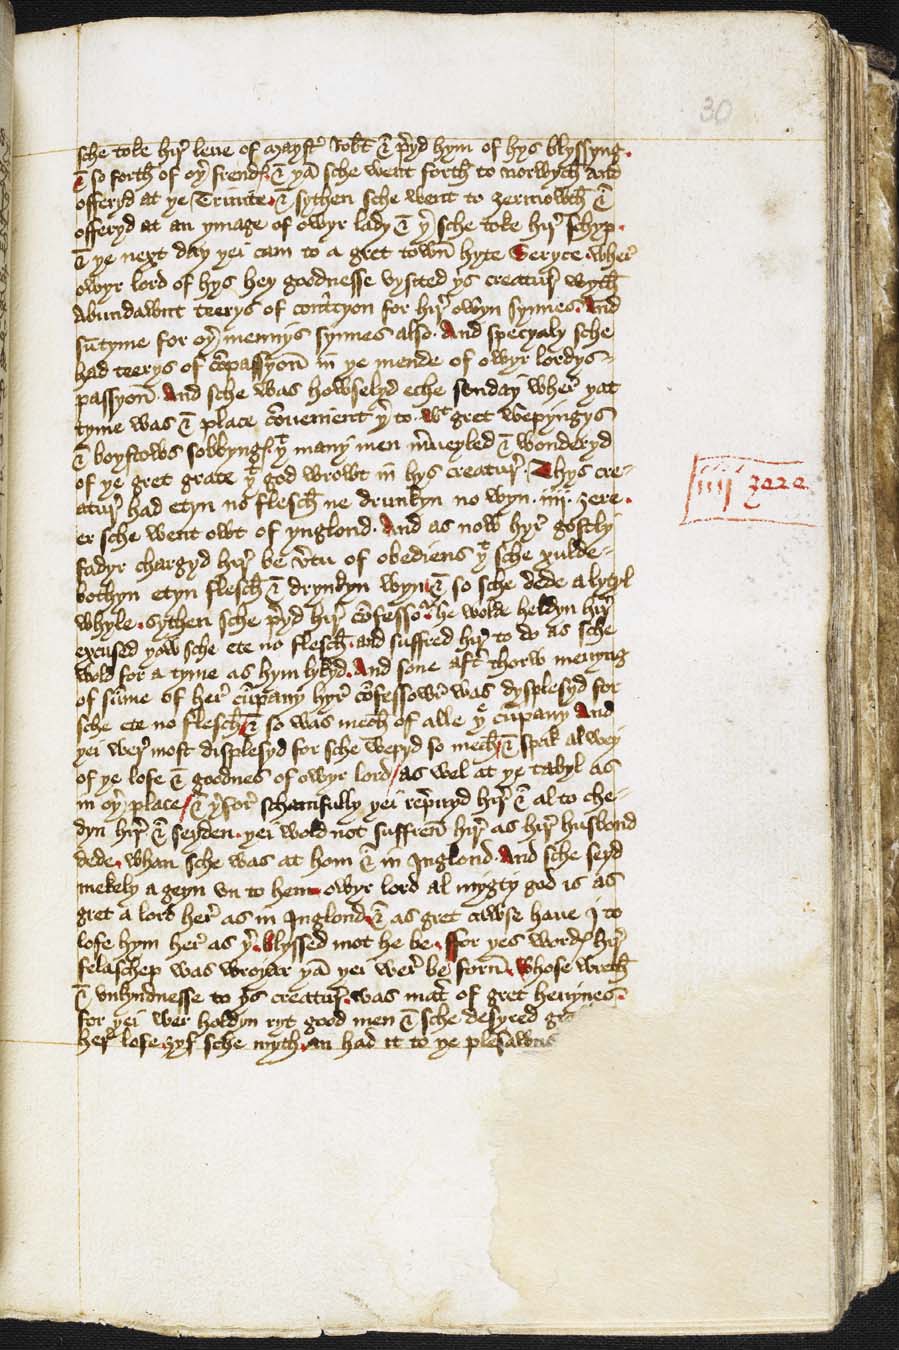 30
sche toke hir leue of mayst̄ Robt̄ & p̄yd hym of hys blyssyng.
& so forth of oþ̄ frendys. & þā sche went forth to norwych And
offeryd at þe Trinite. & sythen sche went to ȝermowth &
offeryd at an ymage of owyr lady & þ̄ sche toke hir schyp.
& þe next day þei cam to a gret town hyte Seryce wher
owyr lord of hys hey goodnesse vysited þis creatur wyth
Abundawnt teerys of cont̄cyon for hir owyn synnes. And
sūtyme for oþ̄ mennys synnes also. And specyaly sche
had teerys of cōpassyon in þe mende of owyr lordys
passyon. And sche was howselyd eche sonday wher þat
tyme was & place cōuenient þ̄ to. wt gret wepyngys
& boystows sobbyngys þt many men m̄ueyled & wonderyd
of þe gret grace þt god wrowt in hys creatur. Thys cre-
atur had etyn no flesch ne drunkyn no wyn. iiij. ȝere.
er sche went owt of ynglond. And as now hyr gostly
iiij ȝere
fadyr chargyd hir be v̄tu of obediens þt sche xulde-
bothyn etyn flesch & drynkyn wyn/ & so sche dede a lytyl
whyle. sythen sche p̄yd hir cōfessor. he wolde heldyn hir
excused ȝow sche ete no flesch. and suffred hir to do as sche
wold for a tyme as hym lykyd. And sone aft̄ thorw meuyng
of sūme of her cūpany hyr cōfessowr was dysplesyd for
sche ete no flesch/ & so was mech of alle þe cūpany And
þei wer most displesyd for sche wepyd so mech/ & spak alwey
of þe lofe & goodnes of owyr lord/ as wel at þe tabyl as
in oþ̄ place/ & þ̄for schamfully þei rep̄uyd hir & al to che-
dyn hir & seyden. þei wold not suffren hir as hir husbond
dede. whan sche was at hom & in Jnglond. And sche seyd
mekely a geyn vn to hem owyr lord al mygty god is as
gret a lord her as in Jnglond & as gret cawse haue j to
lofe hym her as þ̄. blyssed mot he be. ffor þes wordys hir
felaschep was wroþar þā þei wer be forn. whose wreth
& vnkyndnesse to þis creatur. was mat̄ of gret heuynes.
for þei wer holdyn ryt good men & sche desyred
her lofe ȝyf sche myth an had it to þe